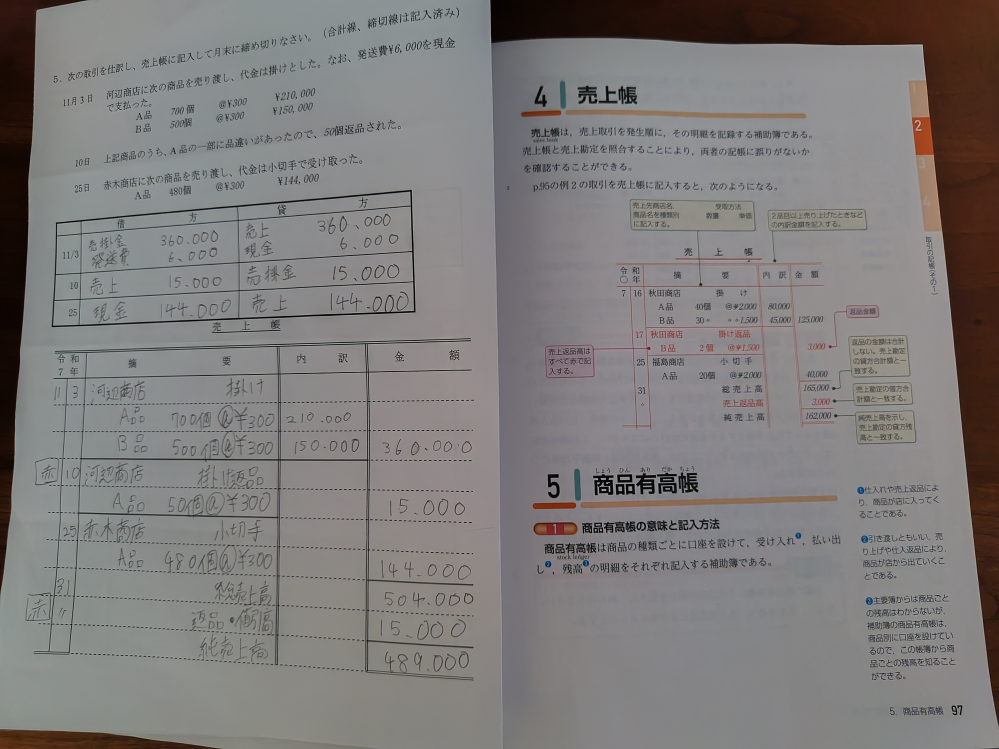 5. 次の取引を仕訳し、売上帳に記入して月末に締め切りなさい。(合計線、締切線は記入済み)
11月3日 河辺商店に次の商品を売り渡し、代金は掛けとした。なお、発送費¥6,000を現金
で支払った。
A品 700個 @¥300 ¥210,000
B品 500個 @¥300 ¥150,000
10日 上記商品のうち、A品の一部に品違いがあったので、50個返品された。
25日 赤木商店に次の商品を売り渡し、代金は小切手で受け取った。
A品 480個 @¥300 ¥144,000
借方 貸方
11/3 売掛金 360.000 売上 360.000
発送費 6.000 現金 6.000
10 売上 15.000 売掛金 15.000
25 現金 144.000 売上 144.000
売上帳
令和7年 摘要 内訳 金額
11 3 河辺商店 掛け
A品 700個@¥300 210.000
B品 500個@¥300 150.000 360.000
赤 10 河辺商店 掛け返品
A品 50個@¥300 15.000
25 赤木商店 小切手
A品 480個@¥300 144.000
31 総売上高 504.000
赤 〃 返品・値引高 15.000
純売上高 489.000
4 売上帳
売上帳は、売上取引を発生順に、その明細を記録する補助簿である。
sales book
売上帳と売上勘定を照合することにより、両者の記帳に誤りがないか
を確認することができる。
p.95の例2の取引を売上帳に記入すると、次のようになる。
売上先商店名 受取方法
商品名を種類別 数量 単価
に記入する。
2品目以上売り上げたときなど
の内訳金額を記入する。
売上帳
令和〇年 摘要 内訳 金額
7 16 秋田商店 掛け
A品 40個 @¥2,000 80,000
B品 30〃 〃〃1,500 45,000 125,000
17 秋田商店 掛け返品
B品 2個 @¥1,500 3,000
25 福島商店 小切手
A品 20個 @¥2,000 40,000
31 総売上高 165,000
〃 売上返品高 3,000
純売上高 162,000
売上返品高は
すべて赤で記
入する。
返品金額
返品の金額は合計
しない。売上勘定
の貸方合計額と一
致する。
売上勘定の借方合
計額と一致する。
純売上高を示し、
売上勘定の貸方残
高と一致する。
5 商品有高帳
しょうひんありだかちょう
1 商品有高帳の意味と記入方法
商品有高帳は商品の種類ごとに口座を設けて、受け入れ❶、払い出
stock ledger
し❷、残高❸の明細をそれぞれ記入する補助簿である。
❶仕入れや売上返品によ
り、商品が店に入ってく
ることである。
❷引き渡しともいい、売
り上げや仕入返品により、
商品が店から出ていくこ
とである。
❸主要簿からは商品ごと
の残高はわからないが、
補助簿の商品有高帳は、
商品別に口座を設けてい
るので、この帳簿から商
品ごとの残高を知ること
ができる。
1
2
3
4
取引の記帳(その1)
5. 商品有高帳 97